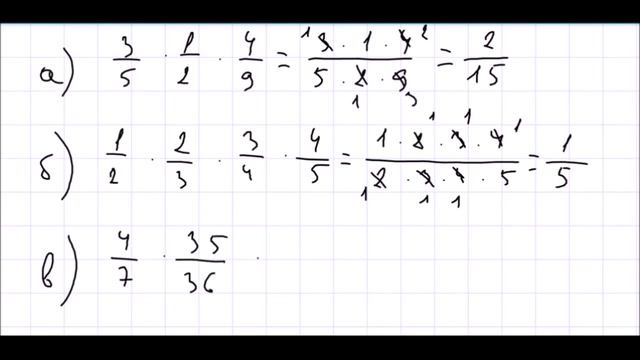 а) 3/5 · 1/2 · 4/9 = 3 · 1 · 4 / 5 · 2 · 9 = 2/15
б) 1/2 · 2/3 · 3/4 · 4/5 = 1 · 2 · 3 · 4 / 2 · 3 · 4 · 5 = 1/5
в) 4/7 · 35/36 ·